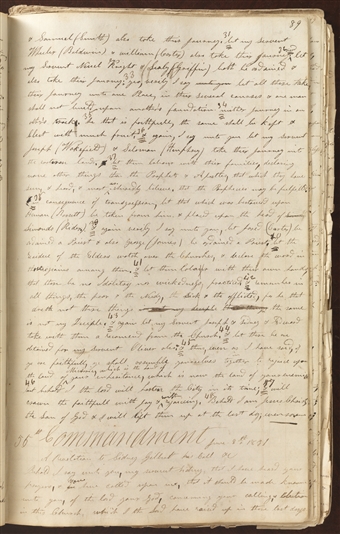 89
& Samuel (Smith) also take their journey 31 let my servent
Wheeler (Baldwin) & william (Carter) also take their journey 32 & let
my Servant Newel Knight & Sealy (Griffin) both be ordained &
also take their journey 33 yea verily I say unto you let all these take
their journey unto one place in their several courses & one man
shall not build upon another's foundation neither journey in an
others track 34 he that is faithfully the same shall be kept &
blest with much fruit 35 & again I say unto you let my servant
Joseph (Wakefield) & Solomon (Humphrey) take their journey into
the eastern lands 36 let them labour with their families declaring
none other things than the Prophets & Apostles that which they have
seen & heard & most believe that the Prophesies may be fulfilled
37 in consequence of transgression let that which was bestowed upon
Heman (Bassett) be taken from him & placed upon the head of
Simonds (Rider) 38 & again verily I say unto you let Jared (Carter) be
ordained a Priest & also George (James) be ordained a Priest 39 let the
residue of the Elders watch over the Churches & declare the word in
the regions among them & let them labour with their own hands
that there be no Idolitry nor wickedness practiced 40 & remember in
all things the poor & the Needy the sick & the afflicted for he that
doeth not these things the same
is not my Disciple 41 & again let my Servent Joseph & Sidney & Edward
take with them a recommend from the Church & let there be one
obtained for my Servent Oliver also 42 & thus even as I have said if
ye are faithfully ye shall assemble yourselves together to rejoice upon
the land of Missorie which is the land of
your inheritence which is now the land of your enemies
but behold I the Lord will hasten the City in its time & will
crown the faithfull with joy & with rejoicing Behold I am Jesus Christ
the Son of God & I will lift them up at the last day even so amen
56th Commandment June 8th 1831
A Revelation to Sidney Gilbert his call &c
Behold I say unto you my servent Sidney that I have heard your
prayers & you have called upon me that it should be made known
unto you of the Lord your God concerning your calling & Election
in this Church which I the Lord have raised up in these last days